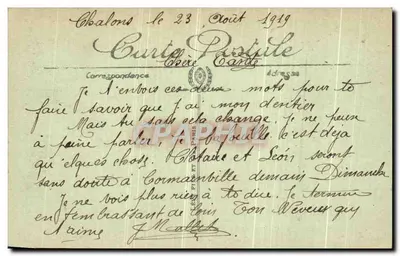 Chalons le 23 Août 1919
Carte Postale
Chère Tante
Correspondance Adresse
Je t'envois ces deux mots pour te
faire savoir que j'ai mon dentier
Mais tu sais sela change. je ne peux
à peine parler, je bafouille c'est deja
quelques chose. Clotaire et Léon seront
sans doute à Cormainville demain Dimanche
Je ne vois plus rien à te dire. Je termine
en t'embrassant de loin Ton Neveux qui
t'aime